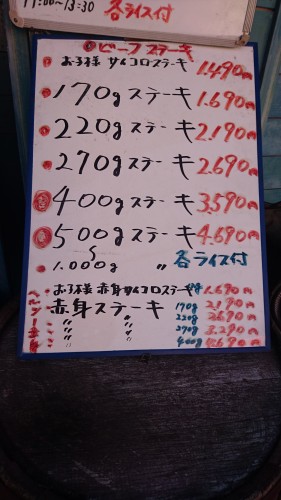 11:00~13:30 各ライス付
ビーフステーキ
お子様 サイコロステーキ 1.490円
170gステーキ 1.690円
220gステーキ 2.190円
270gステーキ 2.690円
400gステーキ 3.590円
500gステーキ 4.690円
〜
1.000g 〃 各ライス付
お子様 赤身サイコロステーキ 1.690円
赤身ステーキ 170g 2.190円
〃 〃 220g 2.690円
〃 〃 270g 3.290円
〃 〃 400g 4.690円